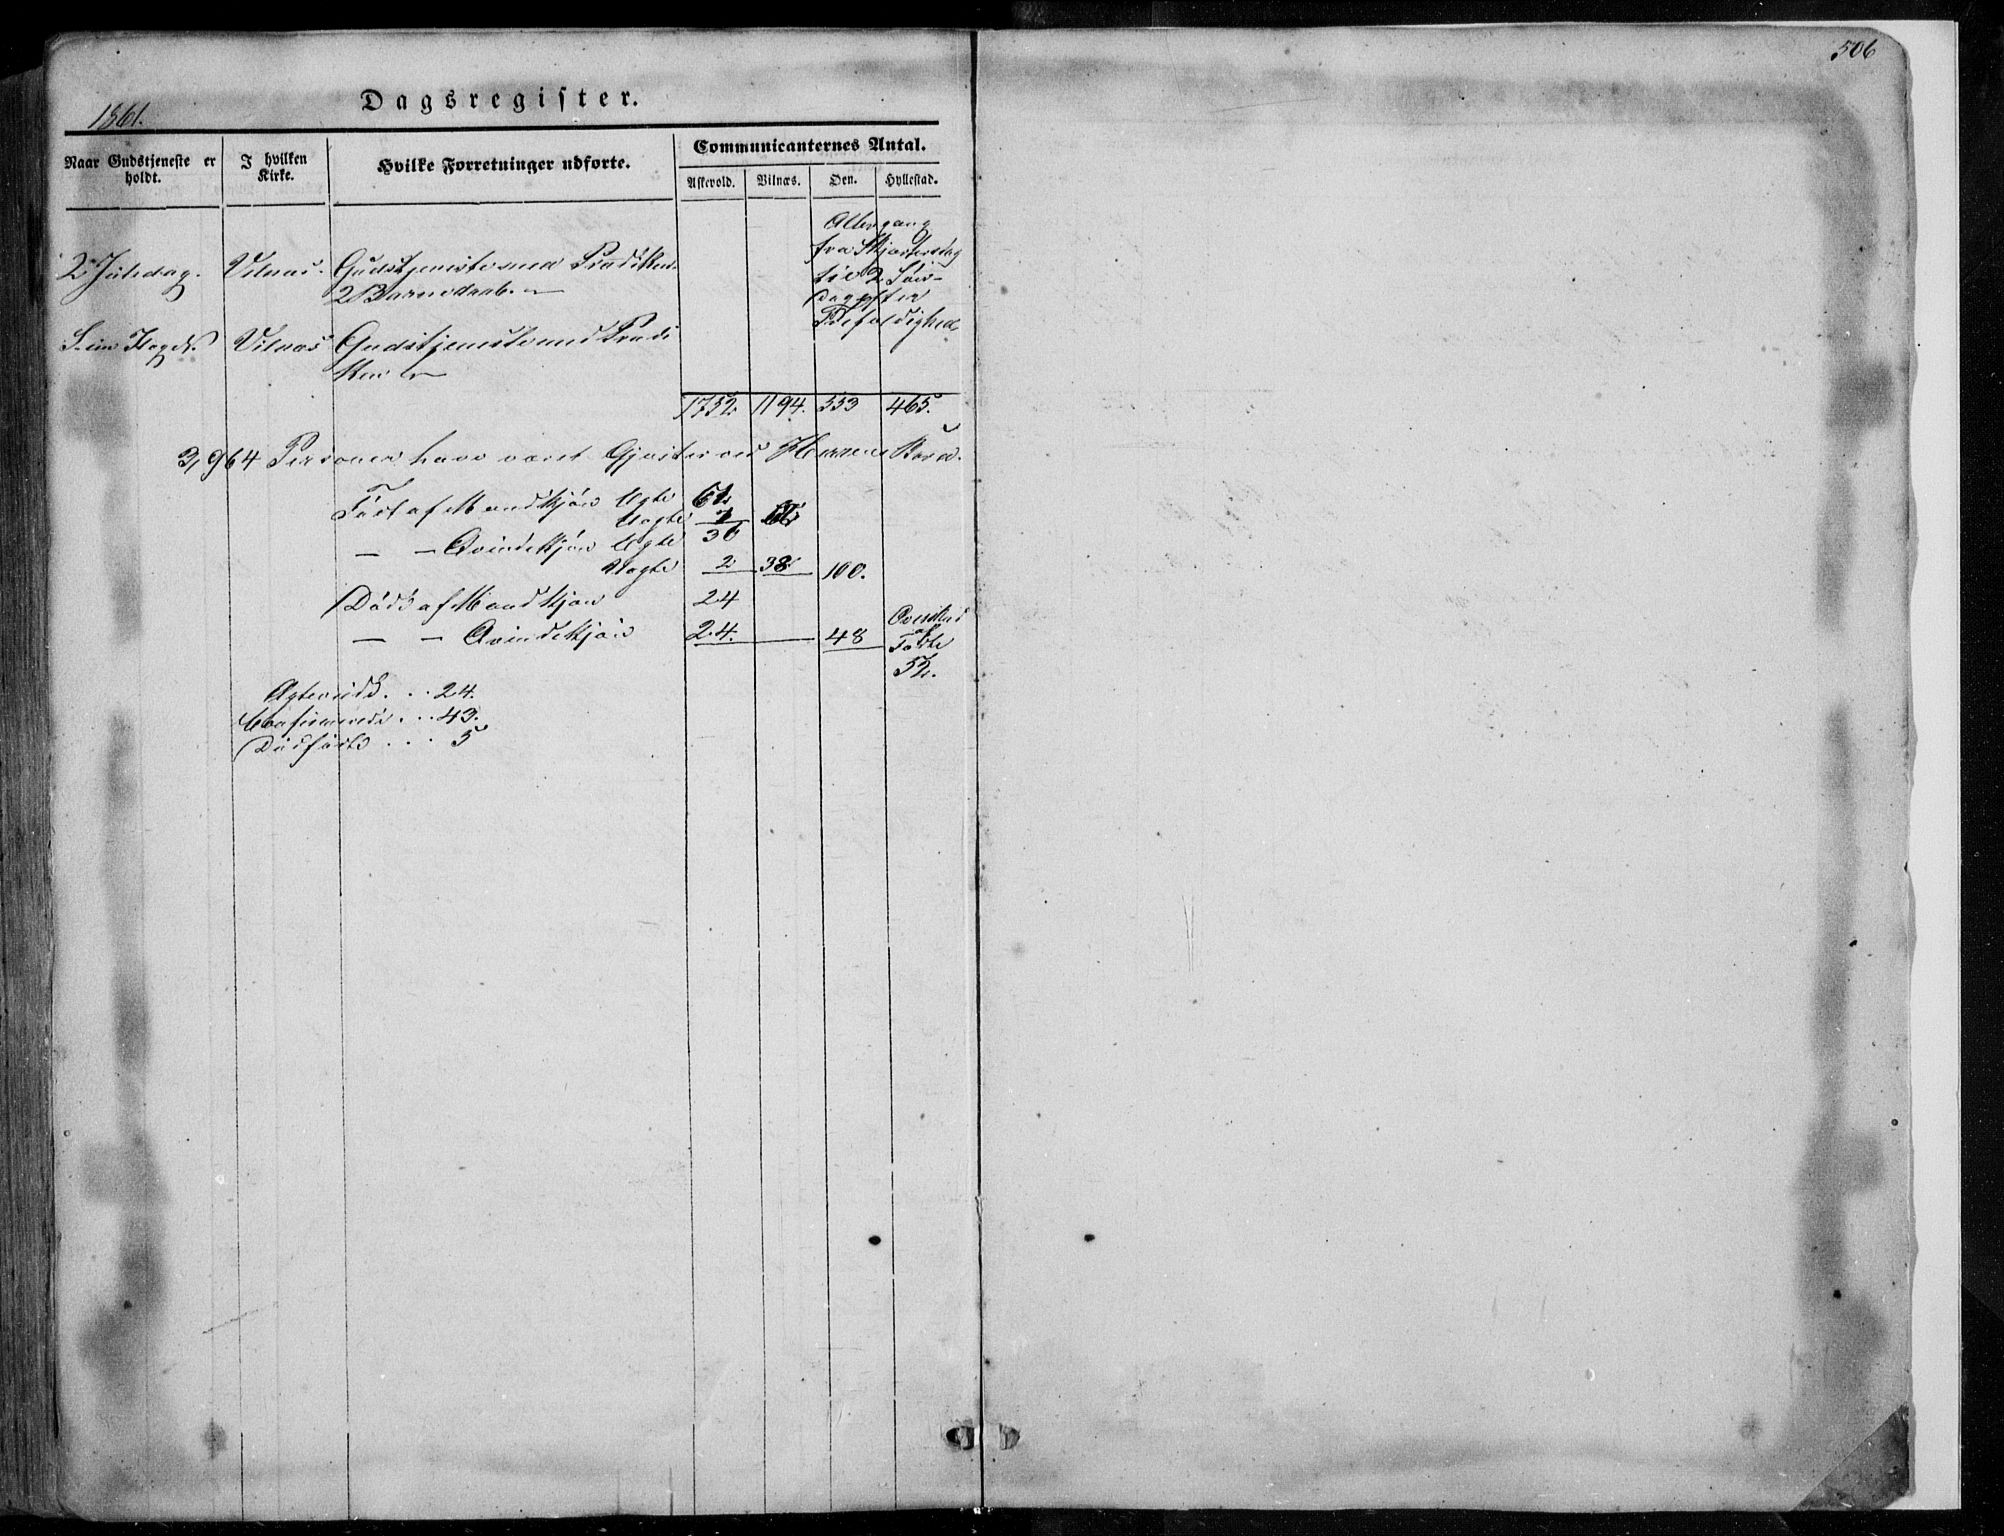 506
1861.
Dagsregister.
Naar Gudstjeneste er holdt.
I hvilken Kirke.
Hvilke Forretninger udførte.
Communicanternes Antal.
Askevold. Vilnæs. Øen. Hyllestad.
2 Juledag. Vilnæs. Gudstjeneste med Prædiken.
2 Barnedaab.
Altergang
fra Skjærtorsdag
til 2 Søn-
dag efter
Trefoldighed
S. im Jl og N. Vilnæs Gudstjeneste med Prædi
ken
1752. 1194. 553 465.
3,964 Personer have været Gjæster ved Herrens Bord.
Født af Mandkjøn Ægte
Uægte
— — Qvindekjøn Ægte 36
Uægte 2 38 100.
Døde af Mandkjøn 24
— — Qvindekjøn 24. 48
Overskud
af
Fødte
52.
Ægteviede . . 24.
Confirmerede . . 43.
Dødfødte . . . 5